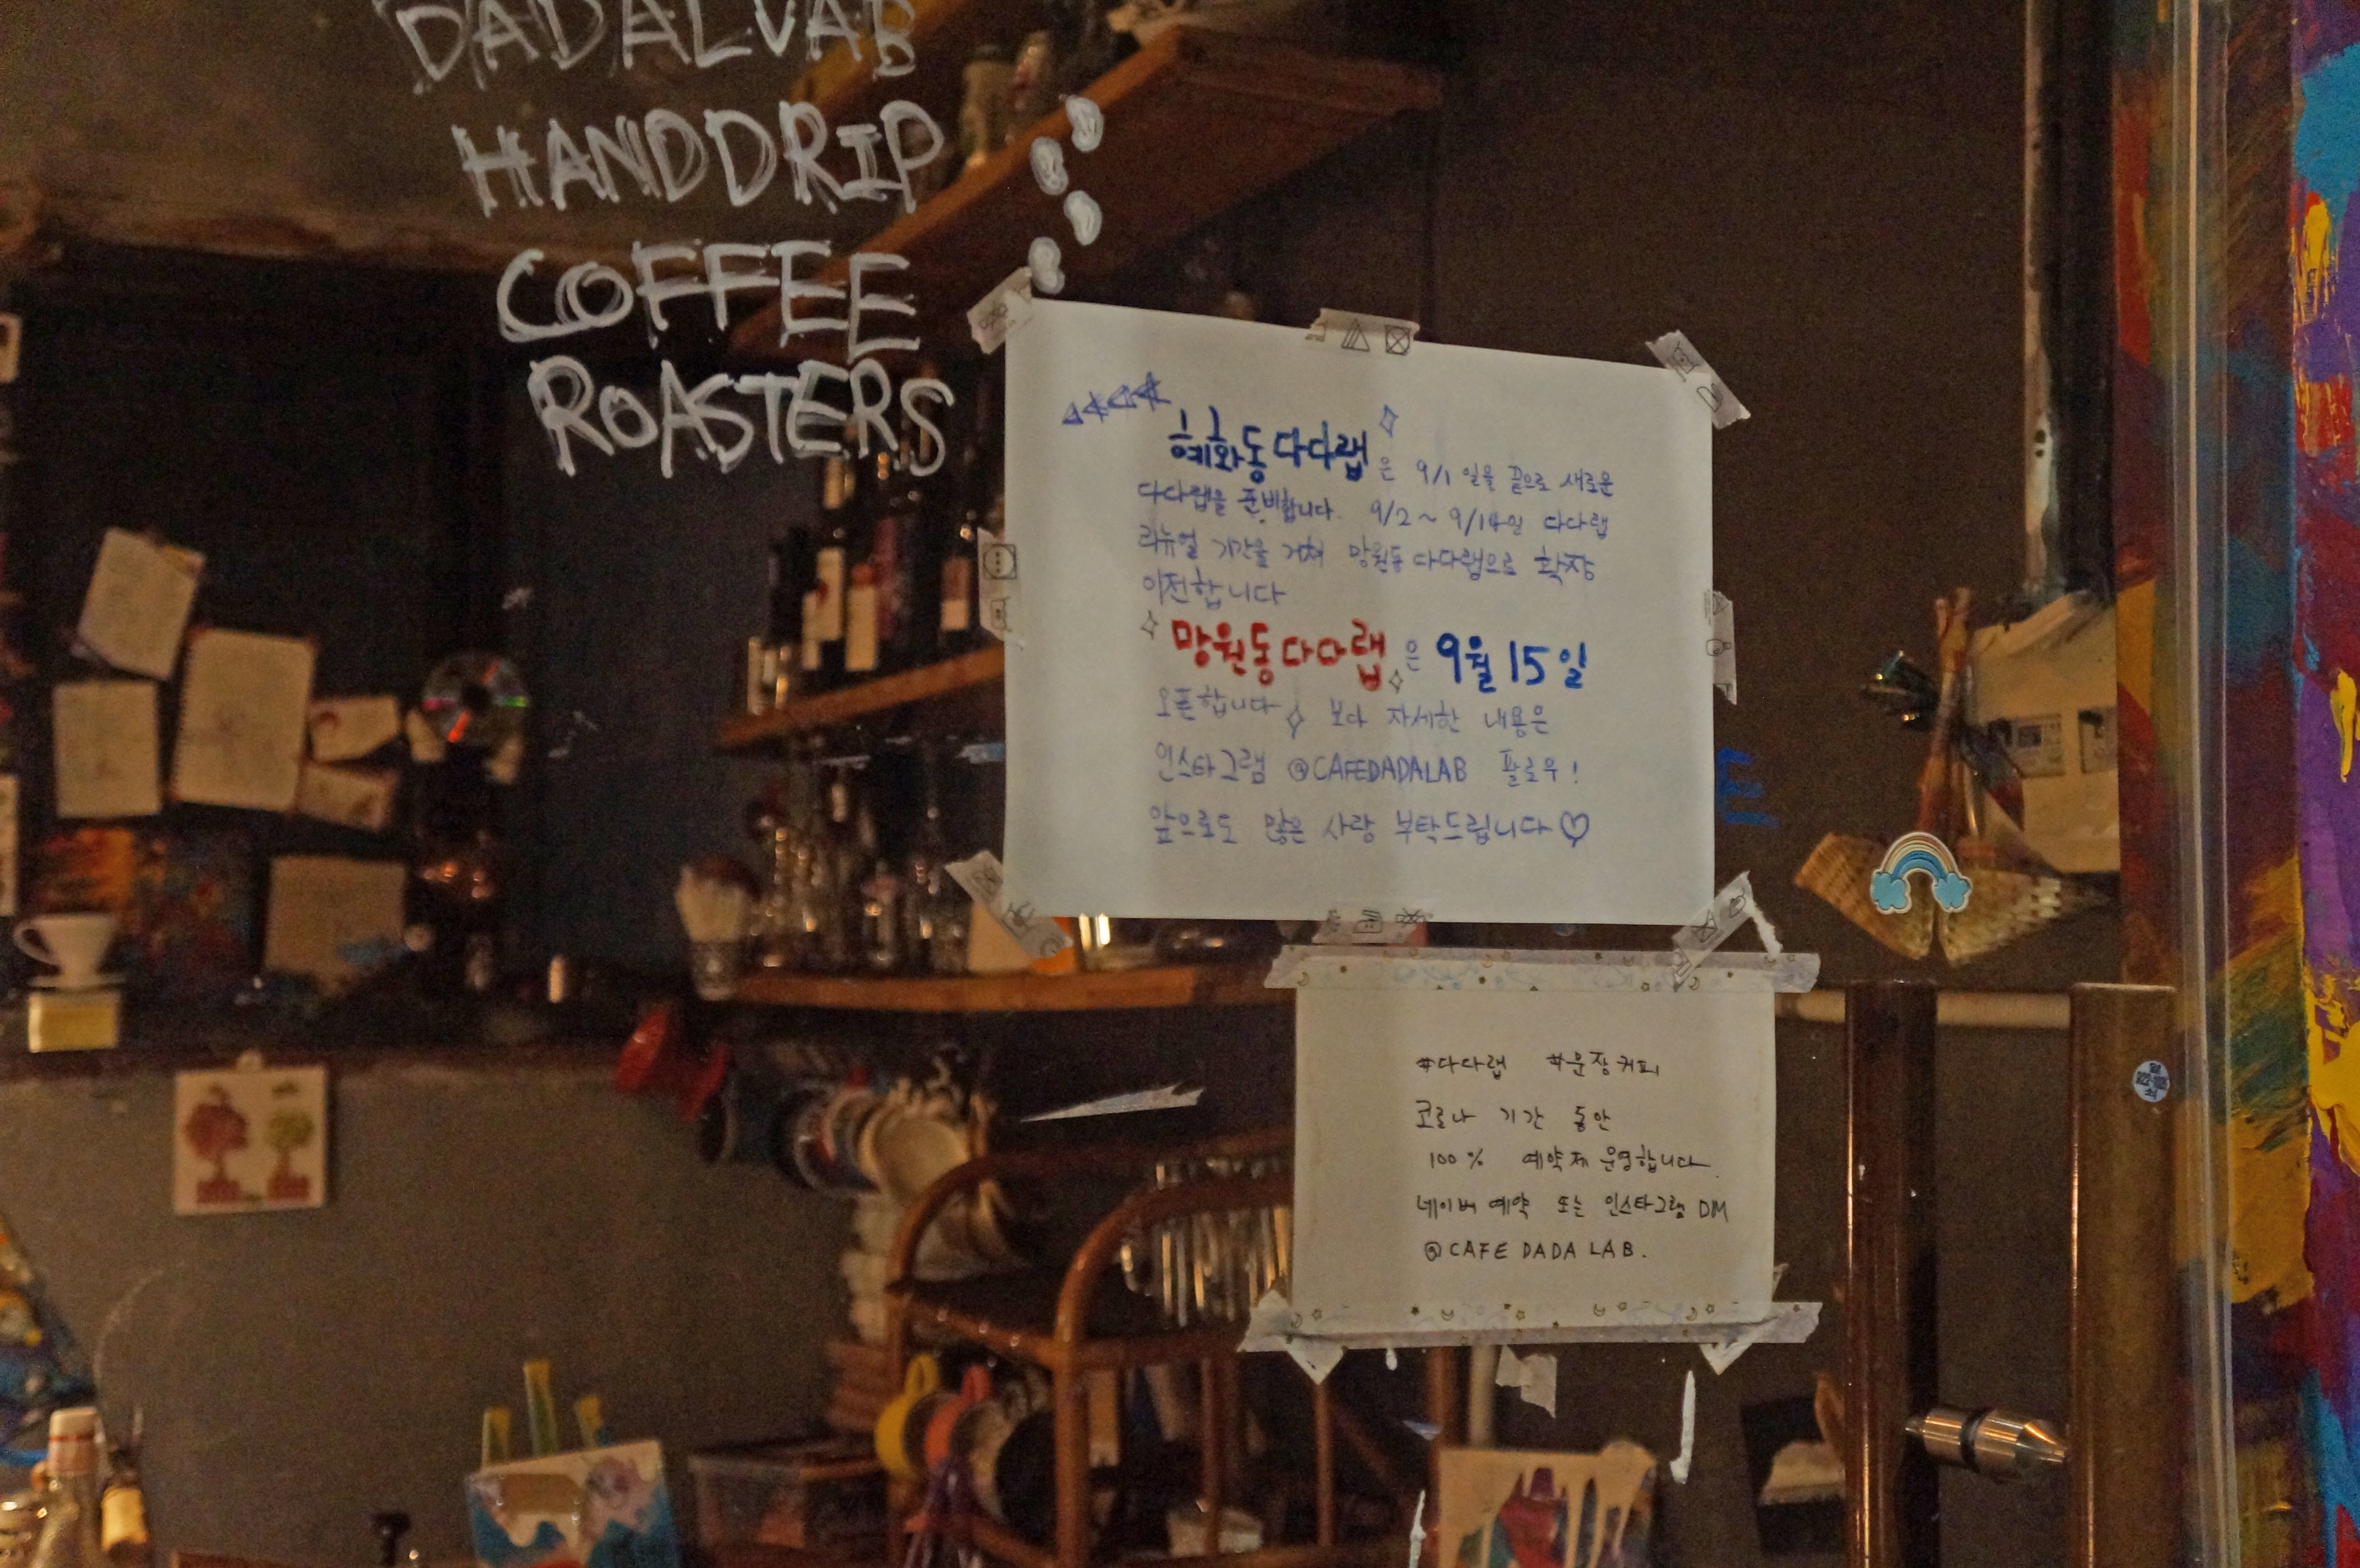 DADALVAB
HANDDRIP
COFFEE
ROASTERS
혜화동다다랩은 9/1 일을 끝으로 새로운
다다랩을 준비합니다. 9/2 ~ 9/14일 다다랩
리뉴얼 기간을 거쳐 망원동다다랩으로 확장
이전합니다
망원동다다랩은 9월 15일
오픈합니다 보다 자세한 내용은
인스타그램 @CAFEDADALAB 팔로우!
앞으로도 많은 사랑 부탁드립니다♡
#다다랩 #문장커피
코로나 기간 동안
100% 예약제 운영합니다.
네이버 예약 또는 인스타그램 DM
@CAFE DADA LAB.